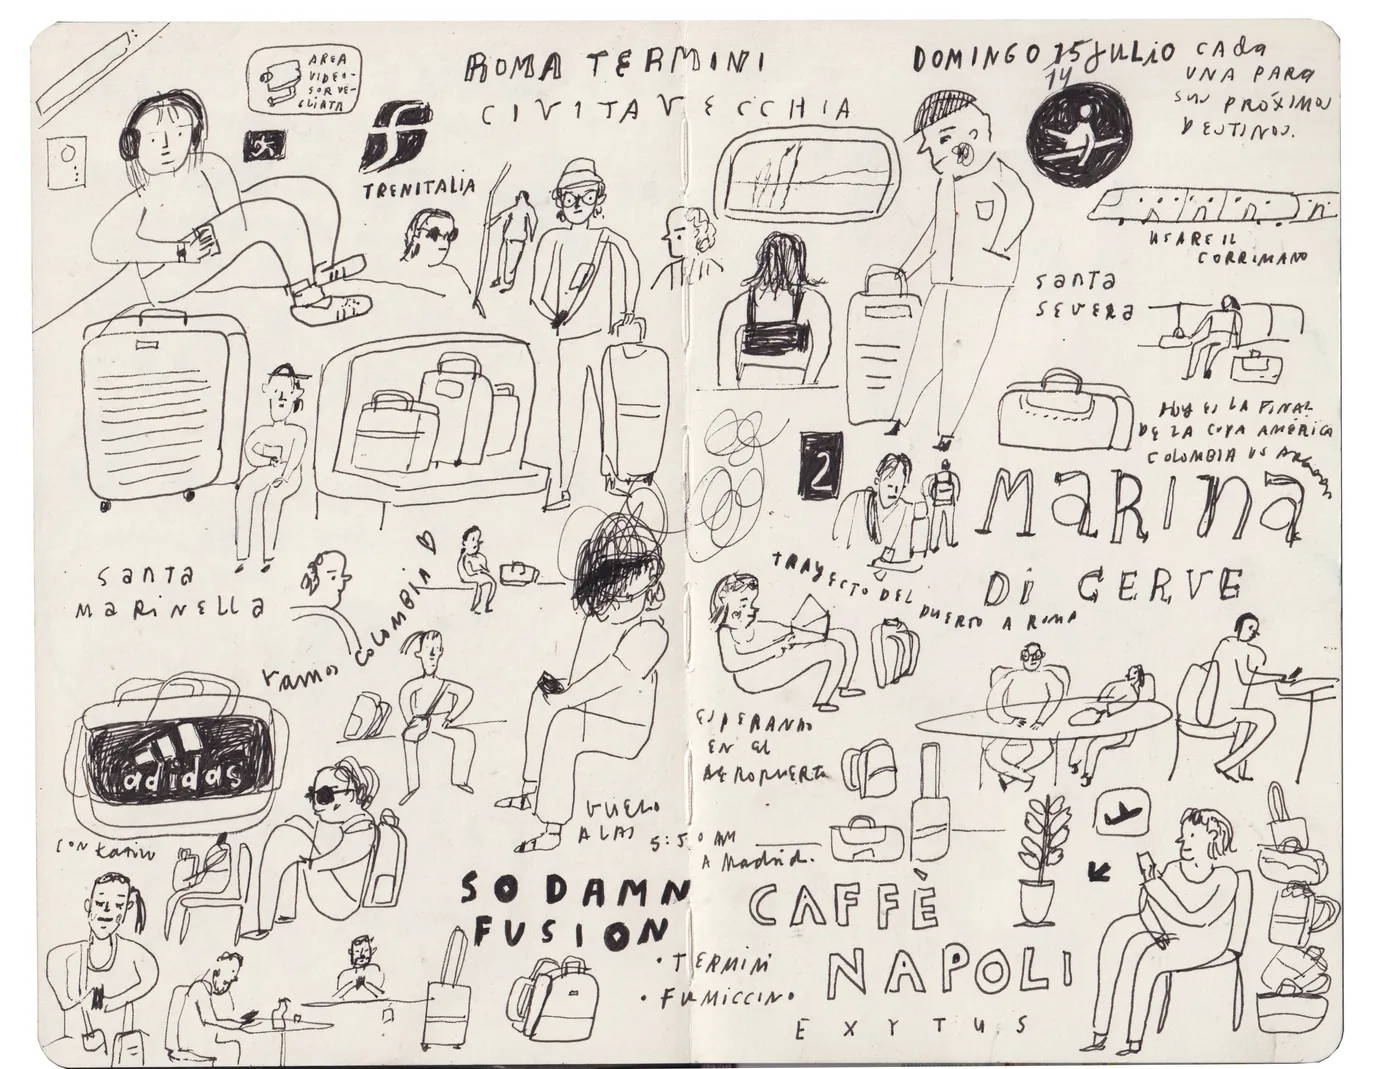 AREA
VIDEO-
SORVE-
GLIATA
ROMA TERMINI
CIVITAVECCHIA
TRENITALIA
DOMINGO 15 JULIO
14
CADA
UNA PARA
SUS PRÓXIMOS
DESTINOS.
USARE IL
CORRIMANO
SANTA
SEVERA
HOY ES LA FINAL
DE LA COPA AMÉRICA
COLOMBIA VS
2
MARINA
DI CERVE
TRAYECTO DEL PUERTO A ROMA
SANTA
MARINELLA
VAMOS COLOMBIA
adidas
CON
ESPERANDO
EN EL
AEROPUERTO
VUELO
A LAS 5:50 AM
A Madrid.
SO DAMN
FUSION
• TERMINI
• FIUMICCINO
CAFFÈ
NAPOLI
EXYTUS